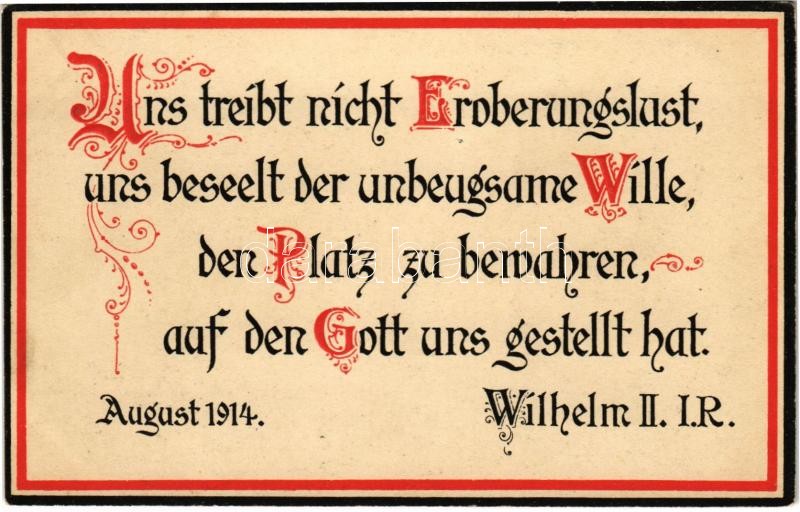 Uns treibt nicht Eroberungslust,
uns beseelt der unbeugsame Wille,
den Platz zu bewahren,
auf den Gott uns gestellt hat.
August 1914.
Wilhelm II. I.R.
darabanth